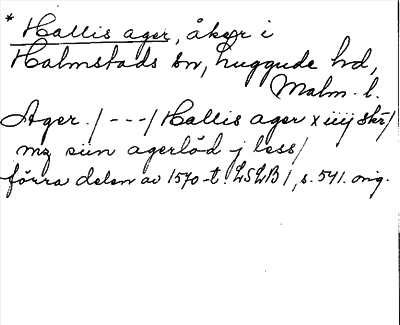 * Hallis ager, åker i
Halmstads sn, Luggude hd,
Malm. l.
Ager. / - - - / Hallis ager x iiij skr /
mz siin agerlöd j less /
förra delen av 1570-t. LSLB 1, s. 541. orig.